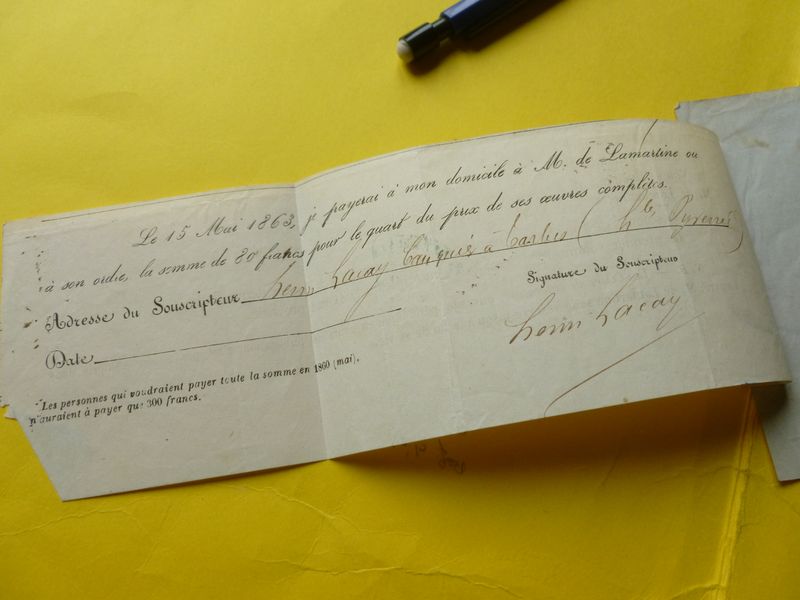 Le 15 Mai 1863, je payerai à mon domicile à M. de Lamartine ou
à son ordre, la somme de 80 francs pour le quart du prix de ses œuvres complètes.
Adresse du Souscripteur henri Lacay banquier à tarbes (htes Pyrenées)
Signature du Souscripteur
Date
henri Lacay
Les personnes qui voudraient payer toute la somme en 1860 (mai),
n'auraient à payer que 300 francs.